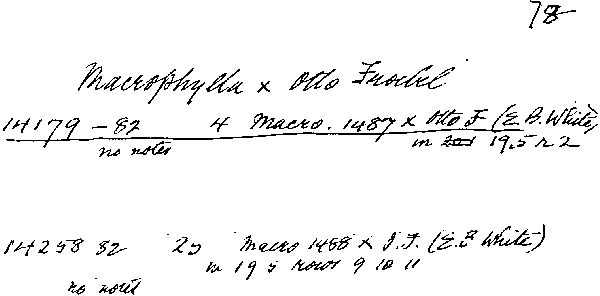 78
Macrophylla x Otto Froebel
14179-82 4 Macro. 1487 x Otto F (E.B. White,
no notes in 19.5 r 2
14258 82 25 Macro 1488 x O.F. (E.B White)
in 19 5 rows 9 10 11
no notes